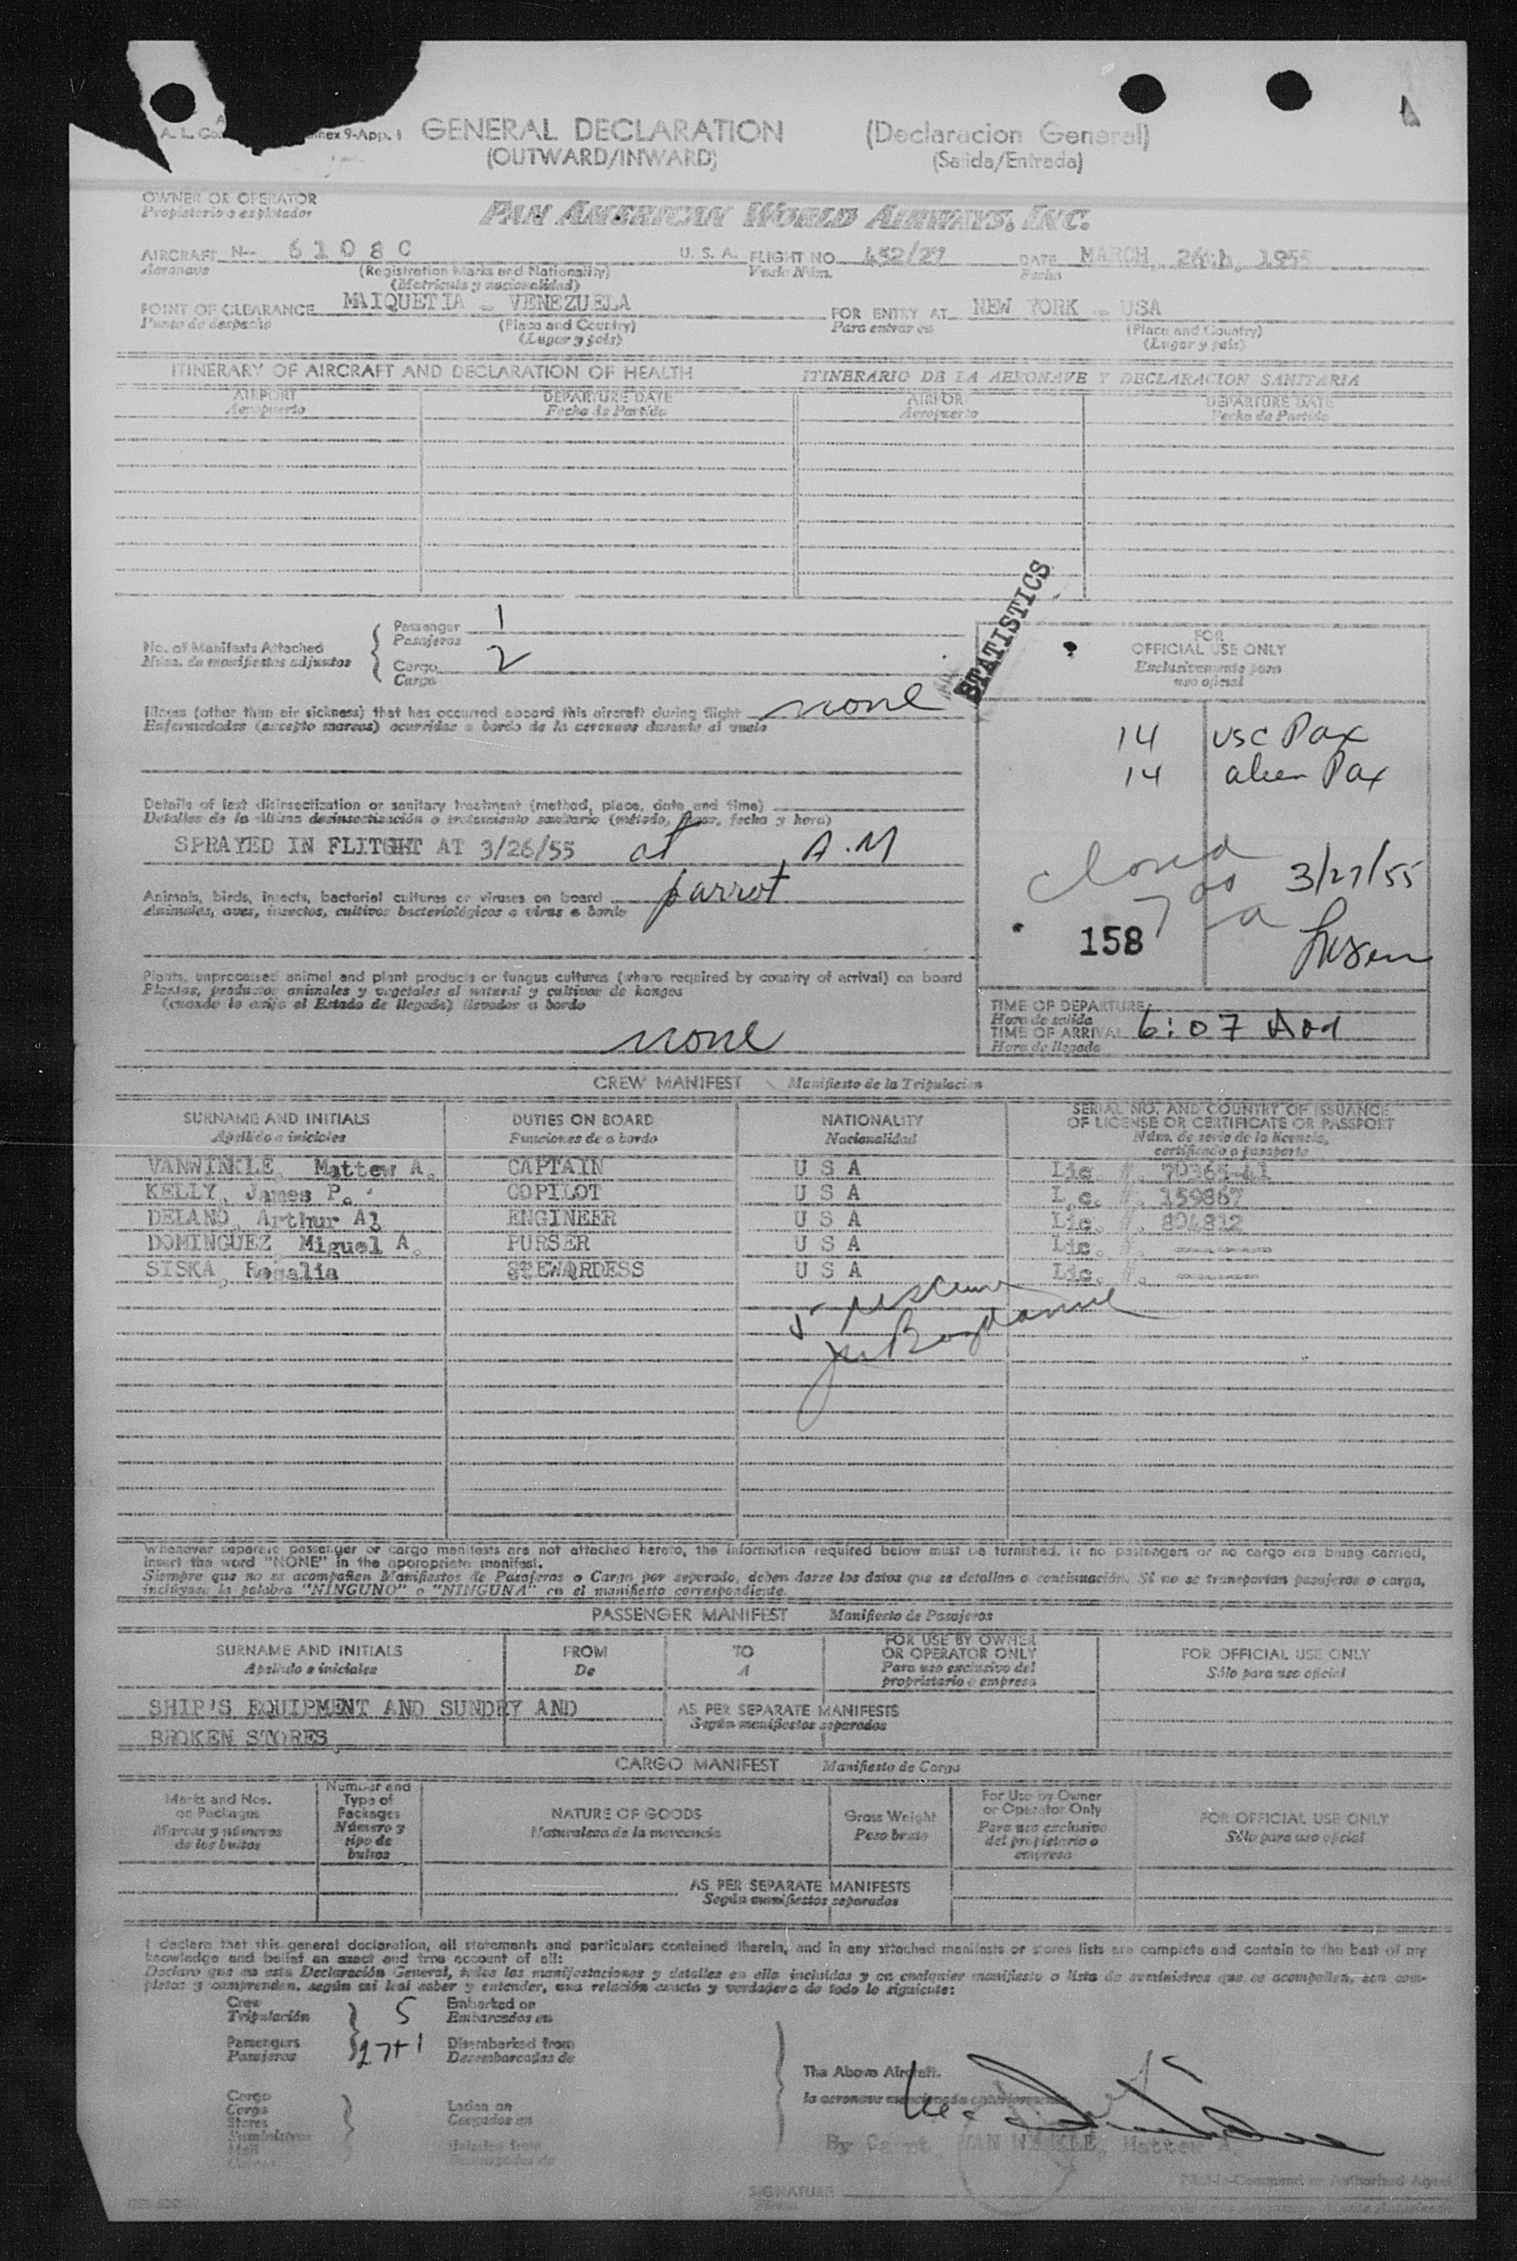 A. L. nnex 9-App. 1 GENERAL DECLARATION (Declaracion General)
(OUTWARD/INWARD) (Salida/Entrada)
OWNER OR OPERATOR PAN AMERICAN WORLD AIRWAYS, INC.
Propietario o explotador
AIRCRAFT N-- 6108C U. S. A. FLIGHT NO. 452/27 DATE MARCH, 26th, 1955
Aeronave (Registration Marks and Nationality) Vuelo Núm. Fecha
(Matrícula y nacionalidad)
POINT OF CLEARANCE MAIQUETIA - VENEZUELA FOR ENTRY AT NEW YORK - USA
Punto de despacho (Place and Country) Para entrar en (Place and Country)
(Lugar y país) (Lugar y país)
ITINERARY OF AIRCRAFT AND DECLARATION OF HEALTH ITINERARIO DE LA AERONAVE Y DECLARACION SANITARIA
AIRPORT DEPARTURE DATE AIRPOR DEPARTURE DATE
Aeropuerto Fecha de Partida Aeropuerto Fecha de Partida
STATISTICS
No. of Manifests Attached Passenger 1
Núm. de manifiestos adjuntos Pasajeros
Cargo 2
Carga
FOR
OFFICIAL USE ONLY
Exclusivamente para
uso oficial
Illness (other than air sickness) that has occurred aboard this aircraft during flight none
Enfermedades (excepto mareos) ocurridas a bordo de la aeronave durante el vuelo
14 usc Pax
14 alien Pax
Details of last disinsectization or sanitary treatment (method, place, date and time)
Detalles de la última desinsectización o tratamiento sanitario (método, lugar, fecha y hora)
SPRAYED IN FLITGHT AT 3/26/55 at A.M
closed 3/27/55
700 a
158
Animals, birds, insects, bacterial cultures or viruses on board parrot
Animales, aves, insectos, cultivos bacteriológicos o virus a bordo
Plants, unprocessed animal and plant products or fungus cultures (where required by country of arrival) on board
Plantas, productos animales y vegetales al natural y cultivos de hongos
(cuando lo exija el Estado de llegada) llevados a bordo
none
TIME OF DEPARTURE
Hora de salida
TIME OF ARRIVAL 6:07 AM
Hora de llegada
CREW MANIFEST Manifiesto de la Tripulacion
SURNAME AND INITIALS DUTIES ON BOARD NATIONALITY SERIAL NO. AND COUNTRY OF ISSUANCE
OF LICENSE OR CERTIFICATE OR PASSPORT
Apellido e iniciales Funciones de a bordo Nacionalidad Núm. de serie de la licencia,
certificado o pasaporte
VANWINKLE, Mattew A. CAPTAIN U S A Lic. #. 70365-41
KELLY, James P. COPILOT U S A L c. #. 159867
DELANO, Arthur Al ENGINEER U S A Lic. #. 804812
DOMINGUEZ, Miguel A. PURSER U S A Lic. #. -------
SISKA, Rosalia STEWARDESS U S A Lic. #. ------
Whenever separate passenger or cargo manifests are not attached hereto, the information required below must be furnished. If no passengers or no cargo are being carried,
insert the word "NONE" in the appropriate manifest.
Siempre que no se acompañen Manifiestos de Pasajeros o Carga por separado, deben darse los datos que se detallan a continuación. Si no se transportan pasajeros o carga,
inclúyase la palabra "NINGUNO" o "NINGUNA" en el manifiesto correspondiente.
PASSENGER MANIFEST Manifiesto de Pasajeros
SURNAME AND INITIALS FROM TO FOR USE BY OWNER OR OPERATOR ONLY FOR OFFICIAL USE ONLY
Apellido e iniciales De A Para uso exclusivo del propietario o empresa Sólo para uso oficial
SHIP'S EQUIPMENT AND SUNDRY AND AS PER SEPARATE MANIFESTS
Según manifiestos separados
BROKEN STORES
CARGO MANIFEST Manifiesto de Carga
Marks and Nos. on Packages Number and Type of Packages NATURE OF GOODS Gross Weight For Use by Owner or Operator Only FOR OFFICIAL USE ONLY
Marcas y números de los bultos Número y tipo de bultos Naturaleza de la mercancía Peso bruto Para uso exclusivo del propietario o empresa Sólo para uso oficial
AS PER SEPARATE MANIFESTS
Según manifiestos separados
I declare that this general declaration, all statements and particulars contained therein, and in any attached manifests or stores lists are complete and contain to the best of my
knowledge and belief an exact and true account of all:
Declaro que en esta Declaración General, todas las manifestaciones y detalles en ella incluidos y en cualquier manifiesto o lista de suministros que se acompañen, son com-
pletos y comprenden, según mi leal saber y entender, una relación exacta y verdadera de todo lo siguiente:
Crew 5 Embarked on
Tripulación Embarcados en
Passengers 27+1 Disembarked from
Pasajeros Desembarcados de
The Above Aircraft.
Cargo
Carga Laden on
Stores Cargados en
Suministros
Mail
By Capt. VAN WINKLE, Mattew A.
Pilot-in-Command or Authorized Agent
SIGNATURE